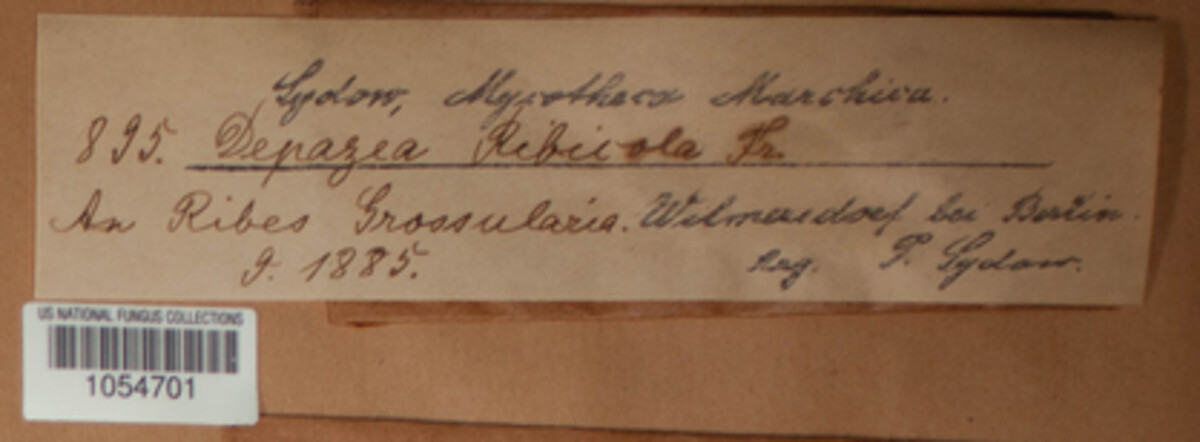 Sydow, Mycotheca Marchica.
895. Depazea Ribicola Fr.
An Ribes Grossularia. Wilmersdorf bei Berlin.
9. 1885. leg. P. Sydow.
US NATIONAL FUNGUS COLLECTIONS
1054701